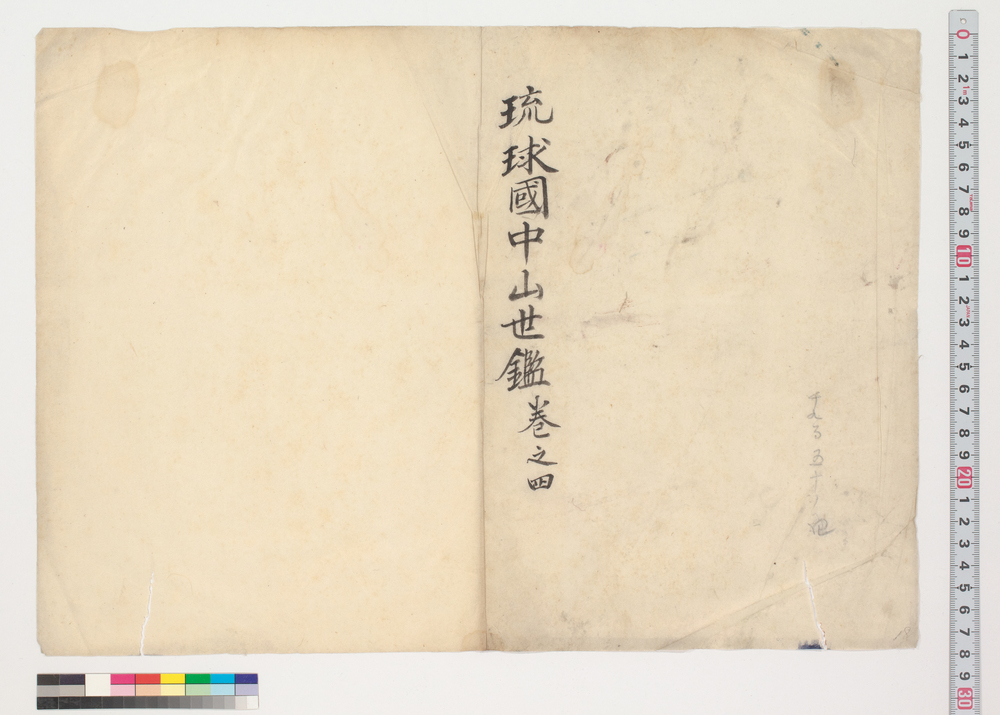 琉球國中山世鑑巻之四
0 1 2 1m 3 4 5 6 7 8 9 10 1 2 3 4 5 6 7 8 9 20 1 2 3 4 5 6 7 8 9 30